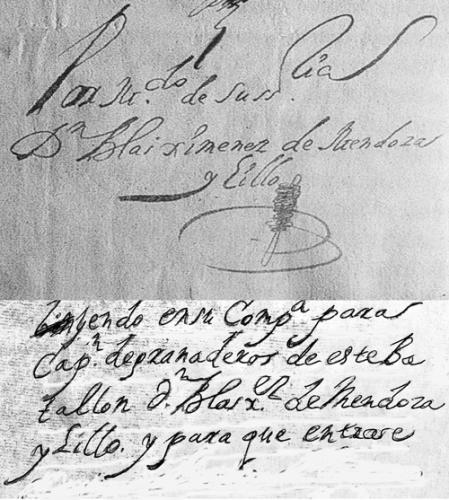 Por M.do de Su Ss.ria
D.n Blas Ximenez de Mendoza
y Lillo
yendo en su Comp.a para
Cap.n de granaderos de este Ba
tallon D.n Blas X.ez de Mendoza
y Lillo. y para que entrase